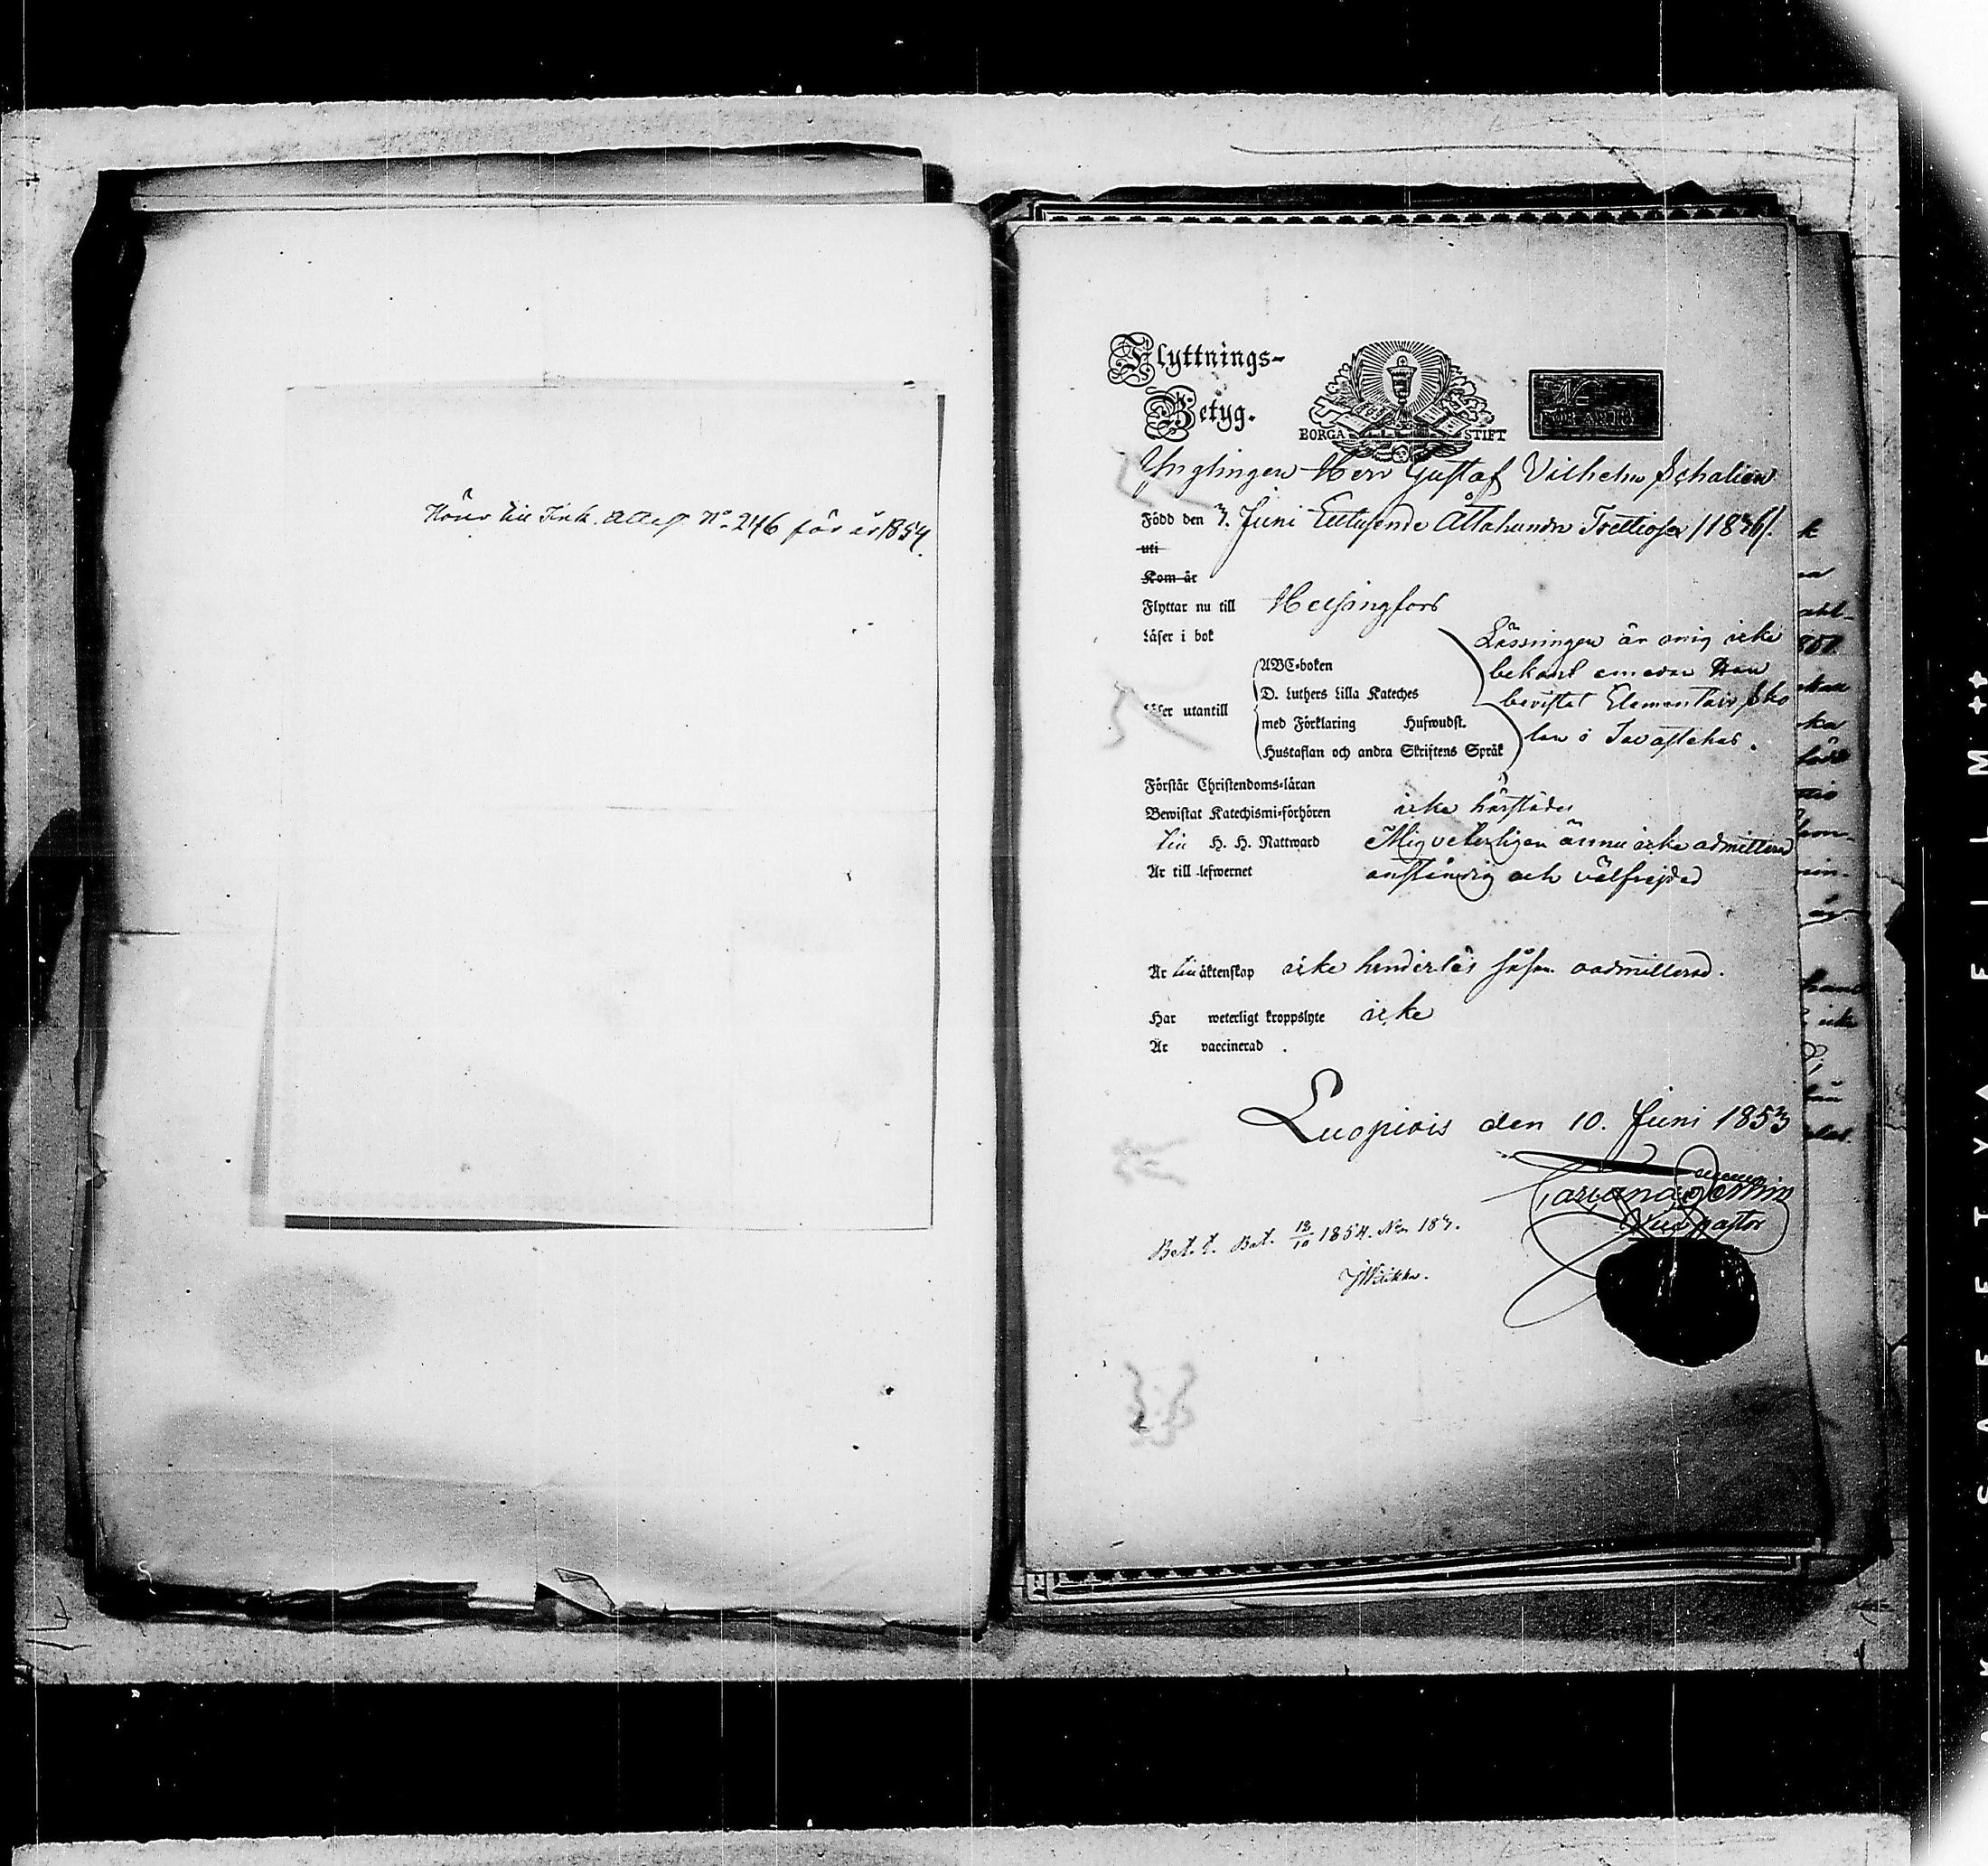 Hörer till Ink. Attest No 246 för år 1854.
Flyttnings-
Betyg.
BORGA STIFT
Ynglingen Herr Gustaf Vilhelm Schalien
Född den 7. Juni Ettusende Åttahundra Trettiosex /1836/.
uti
Kom år
Flyttar nu till Helsingfors
Läser i bok
Läsningen är mig icke
bekant emedan Han
bevistat Elementair Sko
lan i Tavastehus.
ABC-boken
D. Luthers Lilla Kateches
Läser utantill
med Förklaring Hufwudst.
Hustaflan och andra Skriftens Språk
Förstår Christendoms-läran
Bewistat Katechismi-förhören icke härstädes
till H. H. Nattward Mig veterligen ännu icke admitterad
Är till lefwernet anständig och välfrejdad
Är till äktenskap icke hinderlös såsom oadmitterad.
Har weterligt kroppslyte icke
Är vaccinerad.
Luopiois den 10. Juni 1853
Vice pastor
Bet. t. Bet. 12/10 1854. No 187.